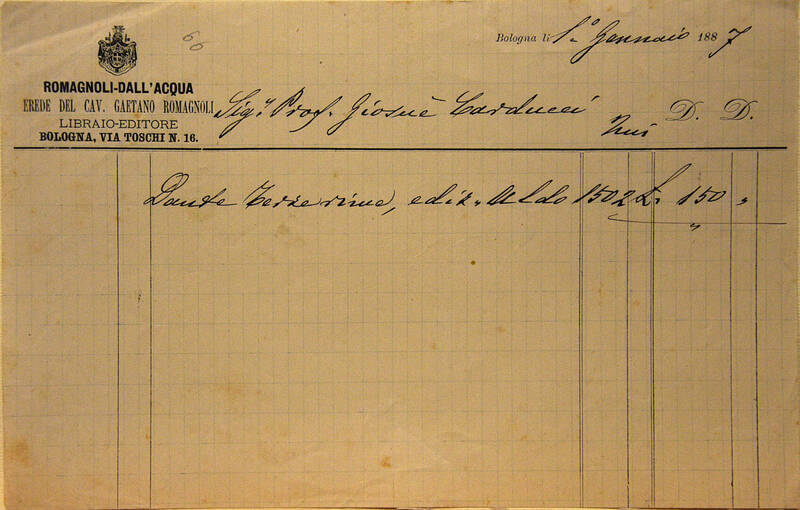 66
Bologna li 1º Gennaio 1887
ROMAGNOLI-DALL'ACQUA
EREDE DEL CAV. GAETANO ROMAGNOLI
LIBRAIO-EDITORE
BOLOGNA, VIA TOSCHI N. 16.
Sigr Prof. Giosuè Carducci
D. D.
Dante Terze rime, ediz. Aldo 1502 £. 150 "
"